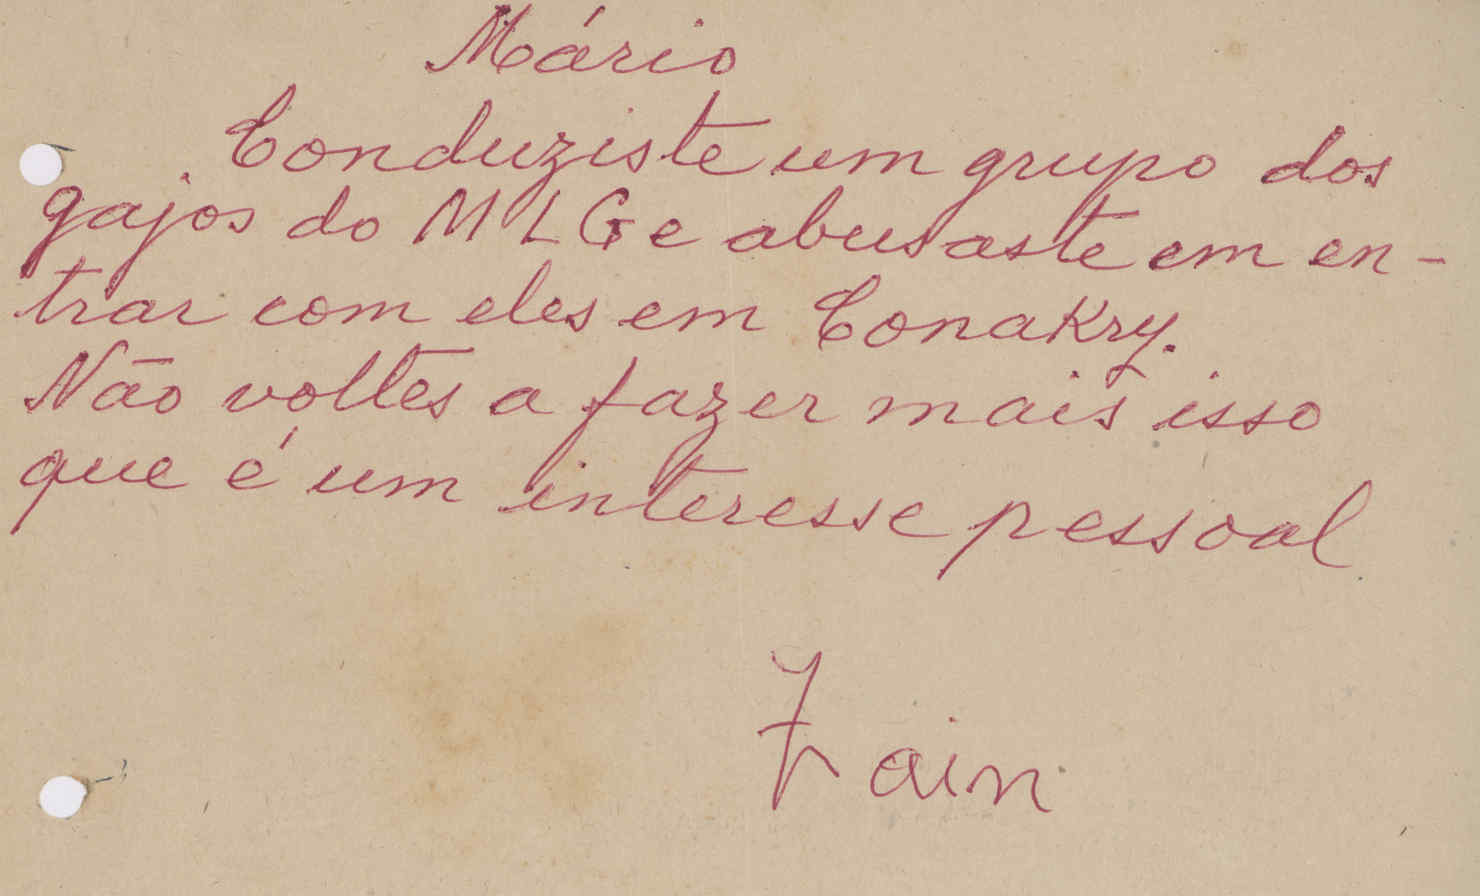 Mário
Conduziste um grupo dos
gajos do MLG e abusaste em en-
trar com eles em Conakry.
Não voltes a fazer mais isso
que é um interesse pessoal
Jain